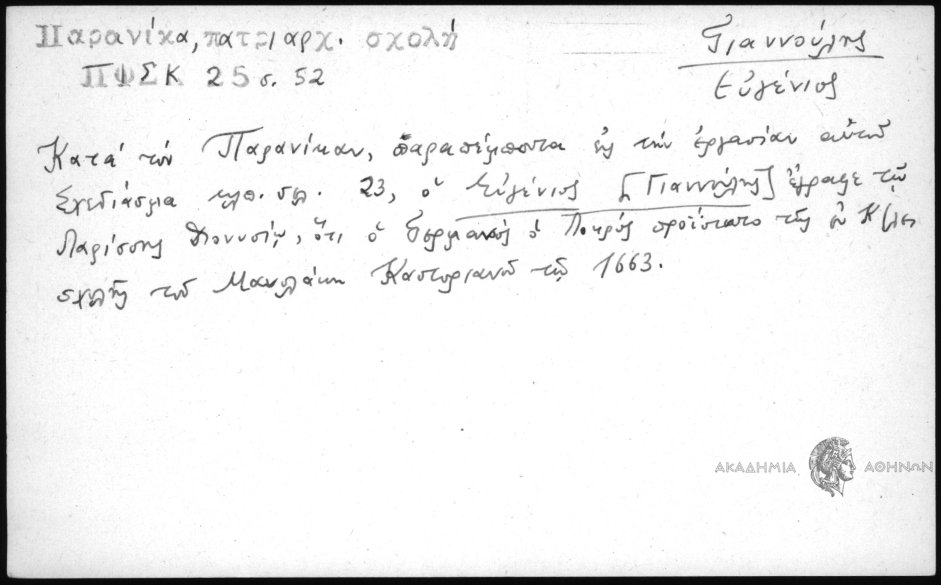 Παρανίκα, πατριαρχ. σχολή
ΠΦΣΚ 25 σ. 52
Γιαννούλης
Εὐγένιος
Κατά τόν Παρανίκαν, παραπέμποντα εἰς τήν ἐργασίαν αὐτοῦ
Σχεδίασμα κλπ. σελ. 23, ὁ Εὐγένιος [Γιαννούλης] ἔγραφε τῷ
Λαρίσσης Διονυσίῳ, ὅτι ὁ Γερμανός ὁ Λοκρός προΐστατο τῆς ἐν Κ/πλει
σχολῆς τοῦ Μανολάκη Καστοριανοῦ τῷ 1663.
ΑΚΑΔΗΜΙΑ ΑΘΗΝΩΝ